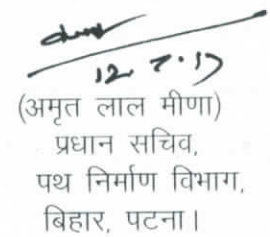 12.7.17
(अमृत लाल मीणा)
प्रधान सचिव,
पथ निर्माण विभाग,
बिहार, पटना।